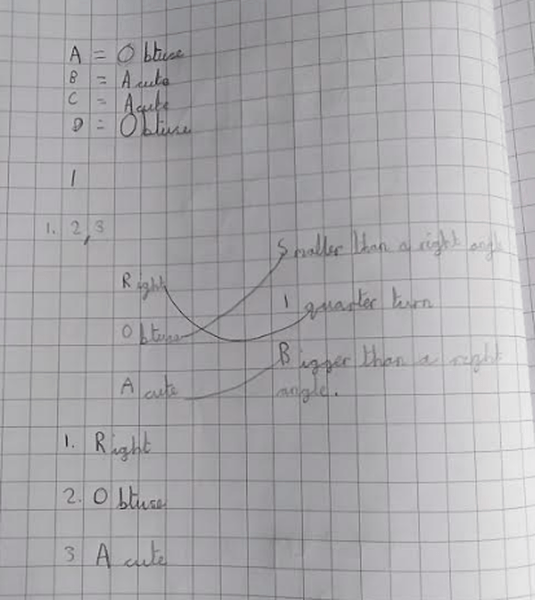 A = Obtuse
B = Acute
C = Acute
D = Obtuse
1
1. 2,3
Smaller than a right angle
Right
1 quarter turn
Obtuse
Bigger than a right
Acute
angle.
1. Right
2. Obtuse
3 Acute